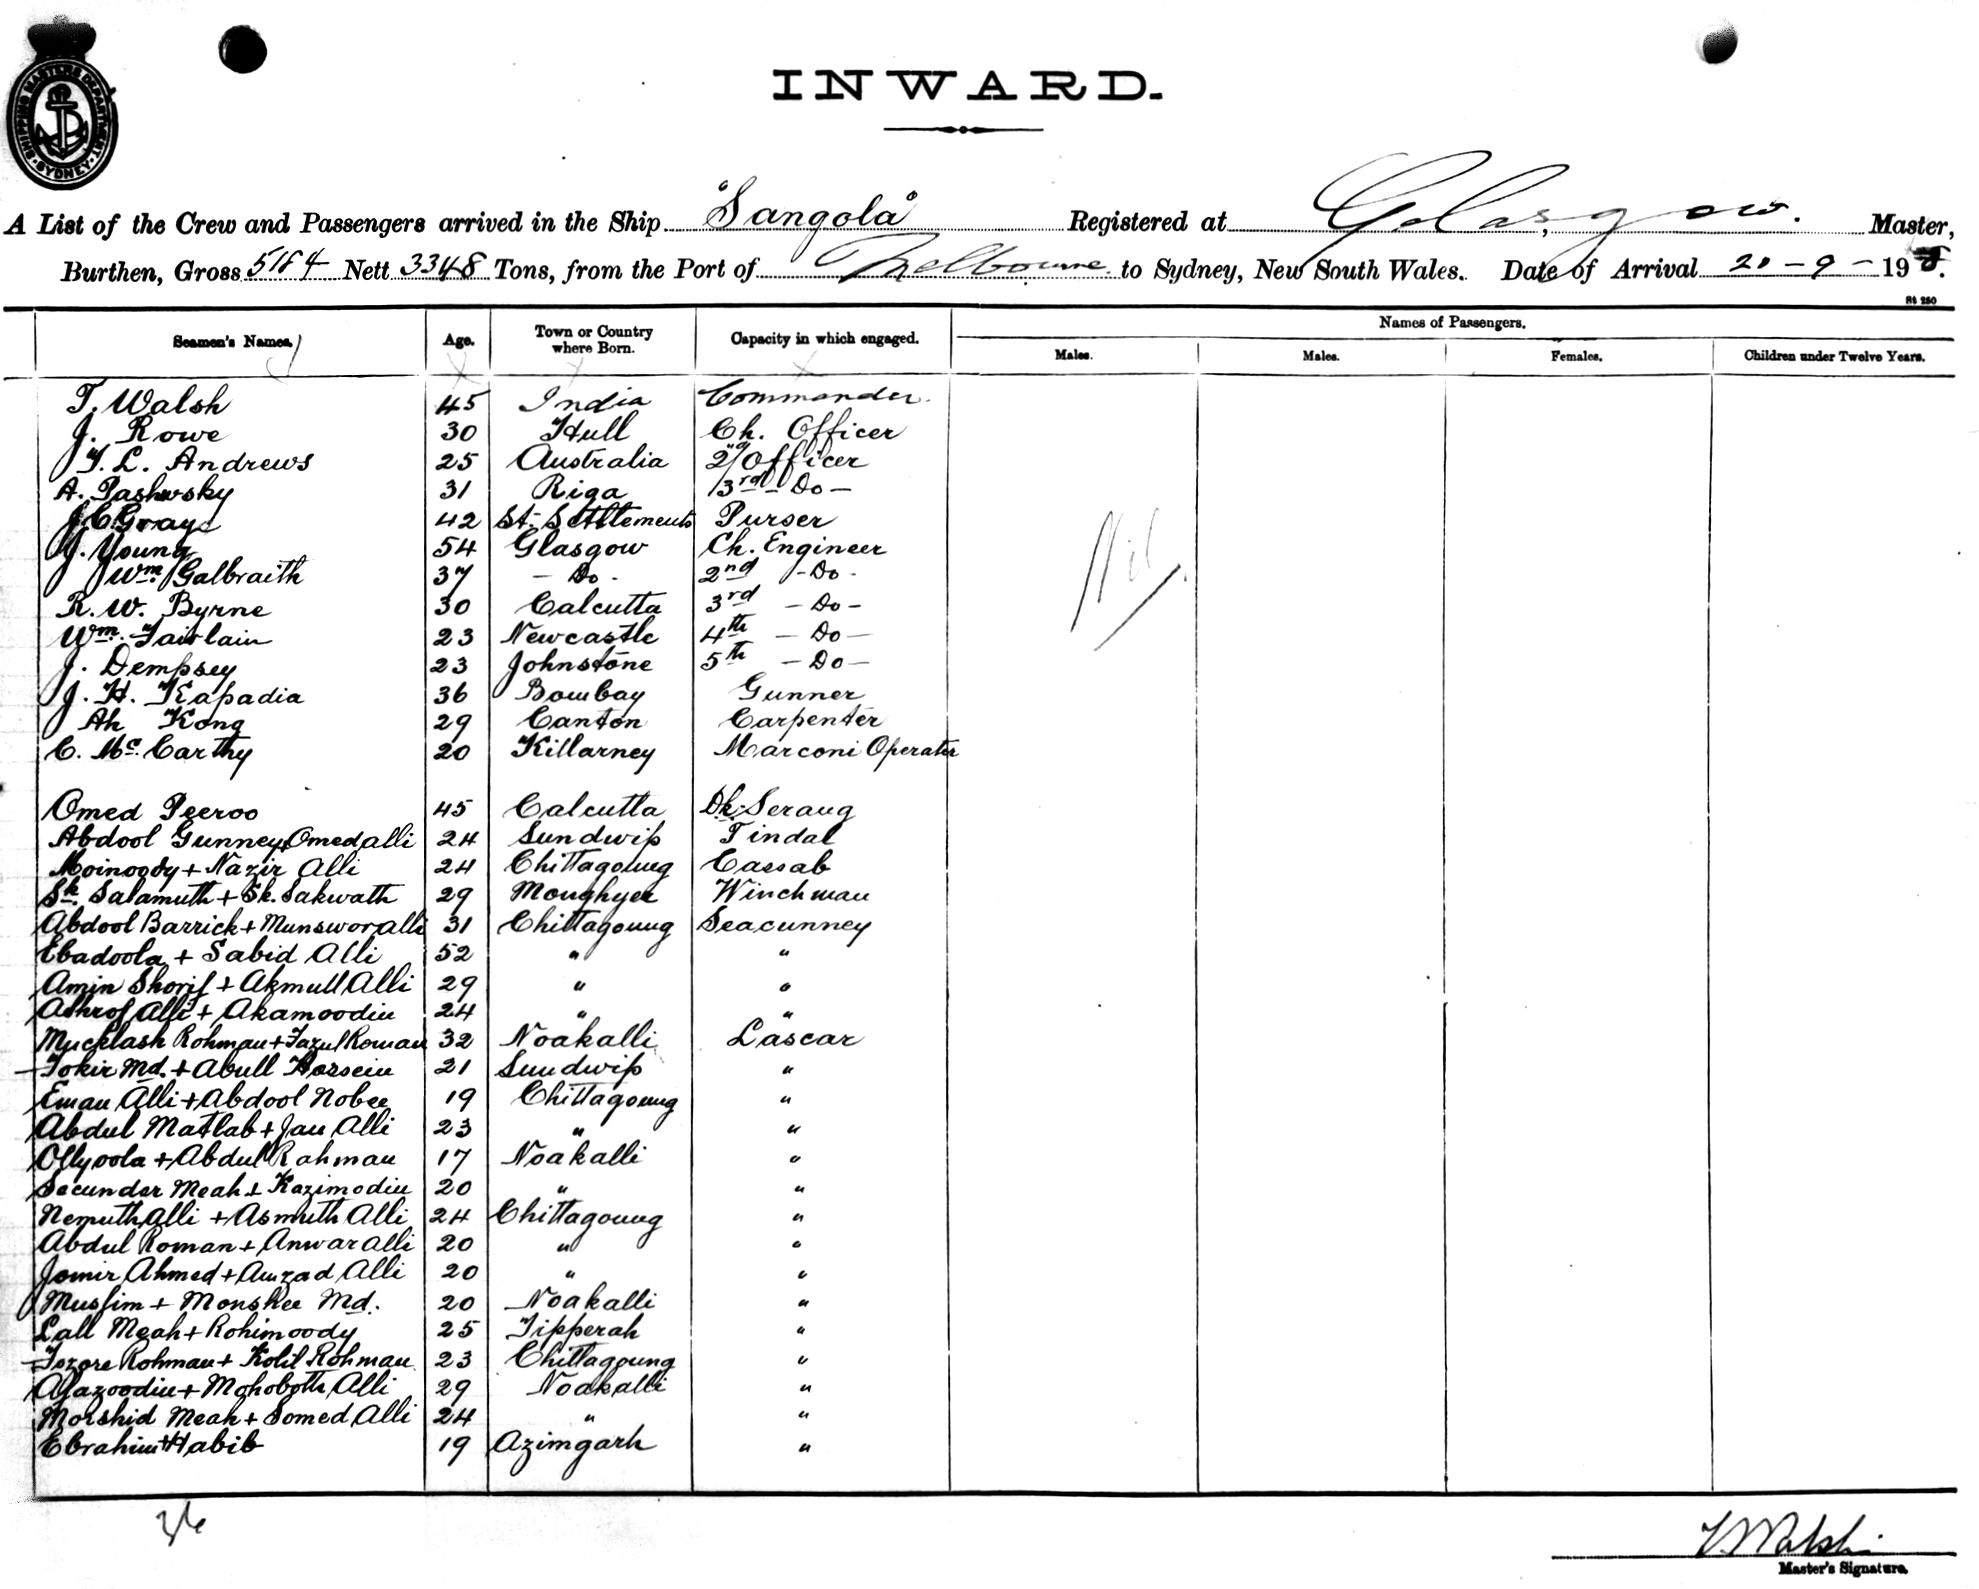 SHIPPING MASTERS DEPARTMENT. SYDNEY.
INWARD.
A List of the Crew and Passengers arrived in the Ship "Sangola" Registered at Glasgow. Master,
Burthen, Gross 5184 Nett 3348 Tons, from the Port of Melbourne to Sydney, New South Wales. Date of Arrival 20-9-19
St 250
Seamen's Names. Age. Town or Country where Born. Capacity in which engaged. Names of Passengers.
Males. Males. Females. Children under Twelve Years.
T. Walsh 45 India Commander.
J. Rowe 30 Hull Ch. Officer
T. L. Andrews 25 Australia 2nd Officer
A. Pashwsky 31 Riga 3rd - Do -
J. C. Gray 42 St. Settlements Purser
J. Young 54 Glasgow Ch. Engineer
Wm. Galbraith 37 - Do - 2nd - Do -
R. W. Byrne 30 Calcutta 3rd - Do -
Wm. Fairlain 23 Newcastle 4th - Do -
J. Dempsey 23 Johnstone 5th - Do -
J. H. Kapadia 36 Bombay Gunner
Ah Kong 29 Canton Carpenter
C. McCarthy 20 Killarney Marconi Operator
Nil.
Omed Peeroo 45 Calcutta Dk. Serang
Abdool Gunney + Omedalli 24 Sundwip Tindal
Moinoody + Nazir Alli 24 Chittagoung Cassab
Sk. Salamuth + Sk. Sakwath 29 Monghyer Winchman
Abdool Barrick + Munsworalli 31 Chittagoung Seacunney
Ebadoola + Sabid Alli 52 " "
Amin Shorif + Akmull Alli 29 " "
Ashrof Alli + Akamoodin 24 " "
Mucklash Rohman + Fazul Roman 32 Noakalli Lascar
Fokir Md. + Abull Hossein 21 Sundwip "
Eman Alli + Abdool Nobee 19 Chittagoung "
Abdul Matlab + Jan Alli 23 " "
Ollyoola + Abdul Rahman 17 Noakalli "
Secunder Meah + Kazimodin 20 " "
Nemuth Alli + Asmuth Alli 24 Chittagoung "
Abdul Roman + Anwar Alli 20 " "
Jomir Ahmed + Amzad Alli 20 " "
Muslim + Monshee Md. 20 Noakalli "
Lall Meah + Rohimoody 25 Tipperah "
Fozore Rohman + Kolil Rohman 23 Chittagoung "
Afazoodin + Mohoboth Alli 29 Noakalli "
Morshid Meah + Somed Alli 24 " "
Ebrahim + Habib 19 Azimgarh "
36
T. Walsh
Master's Signature.